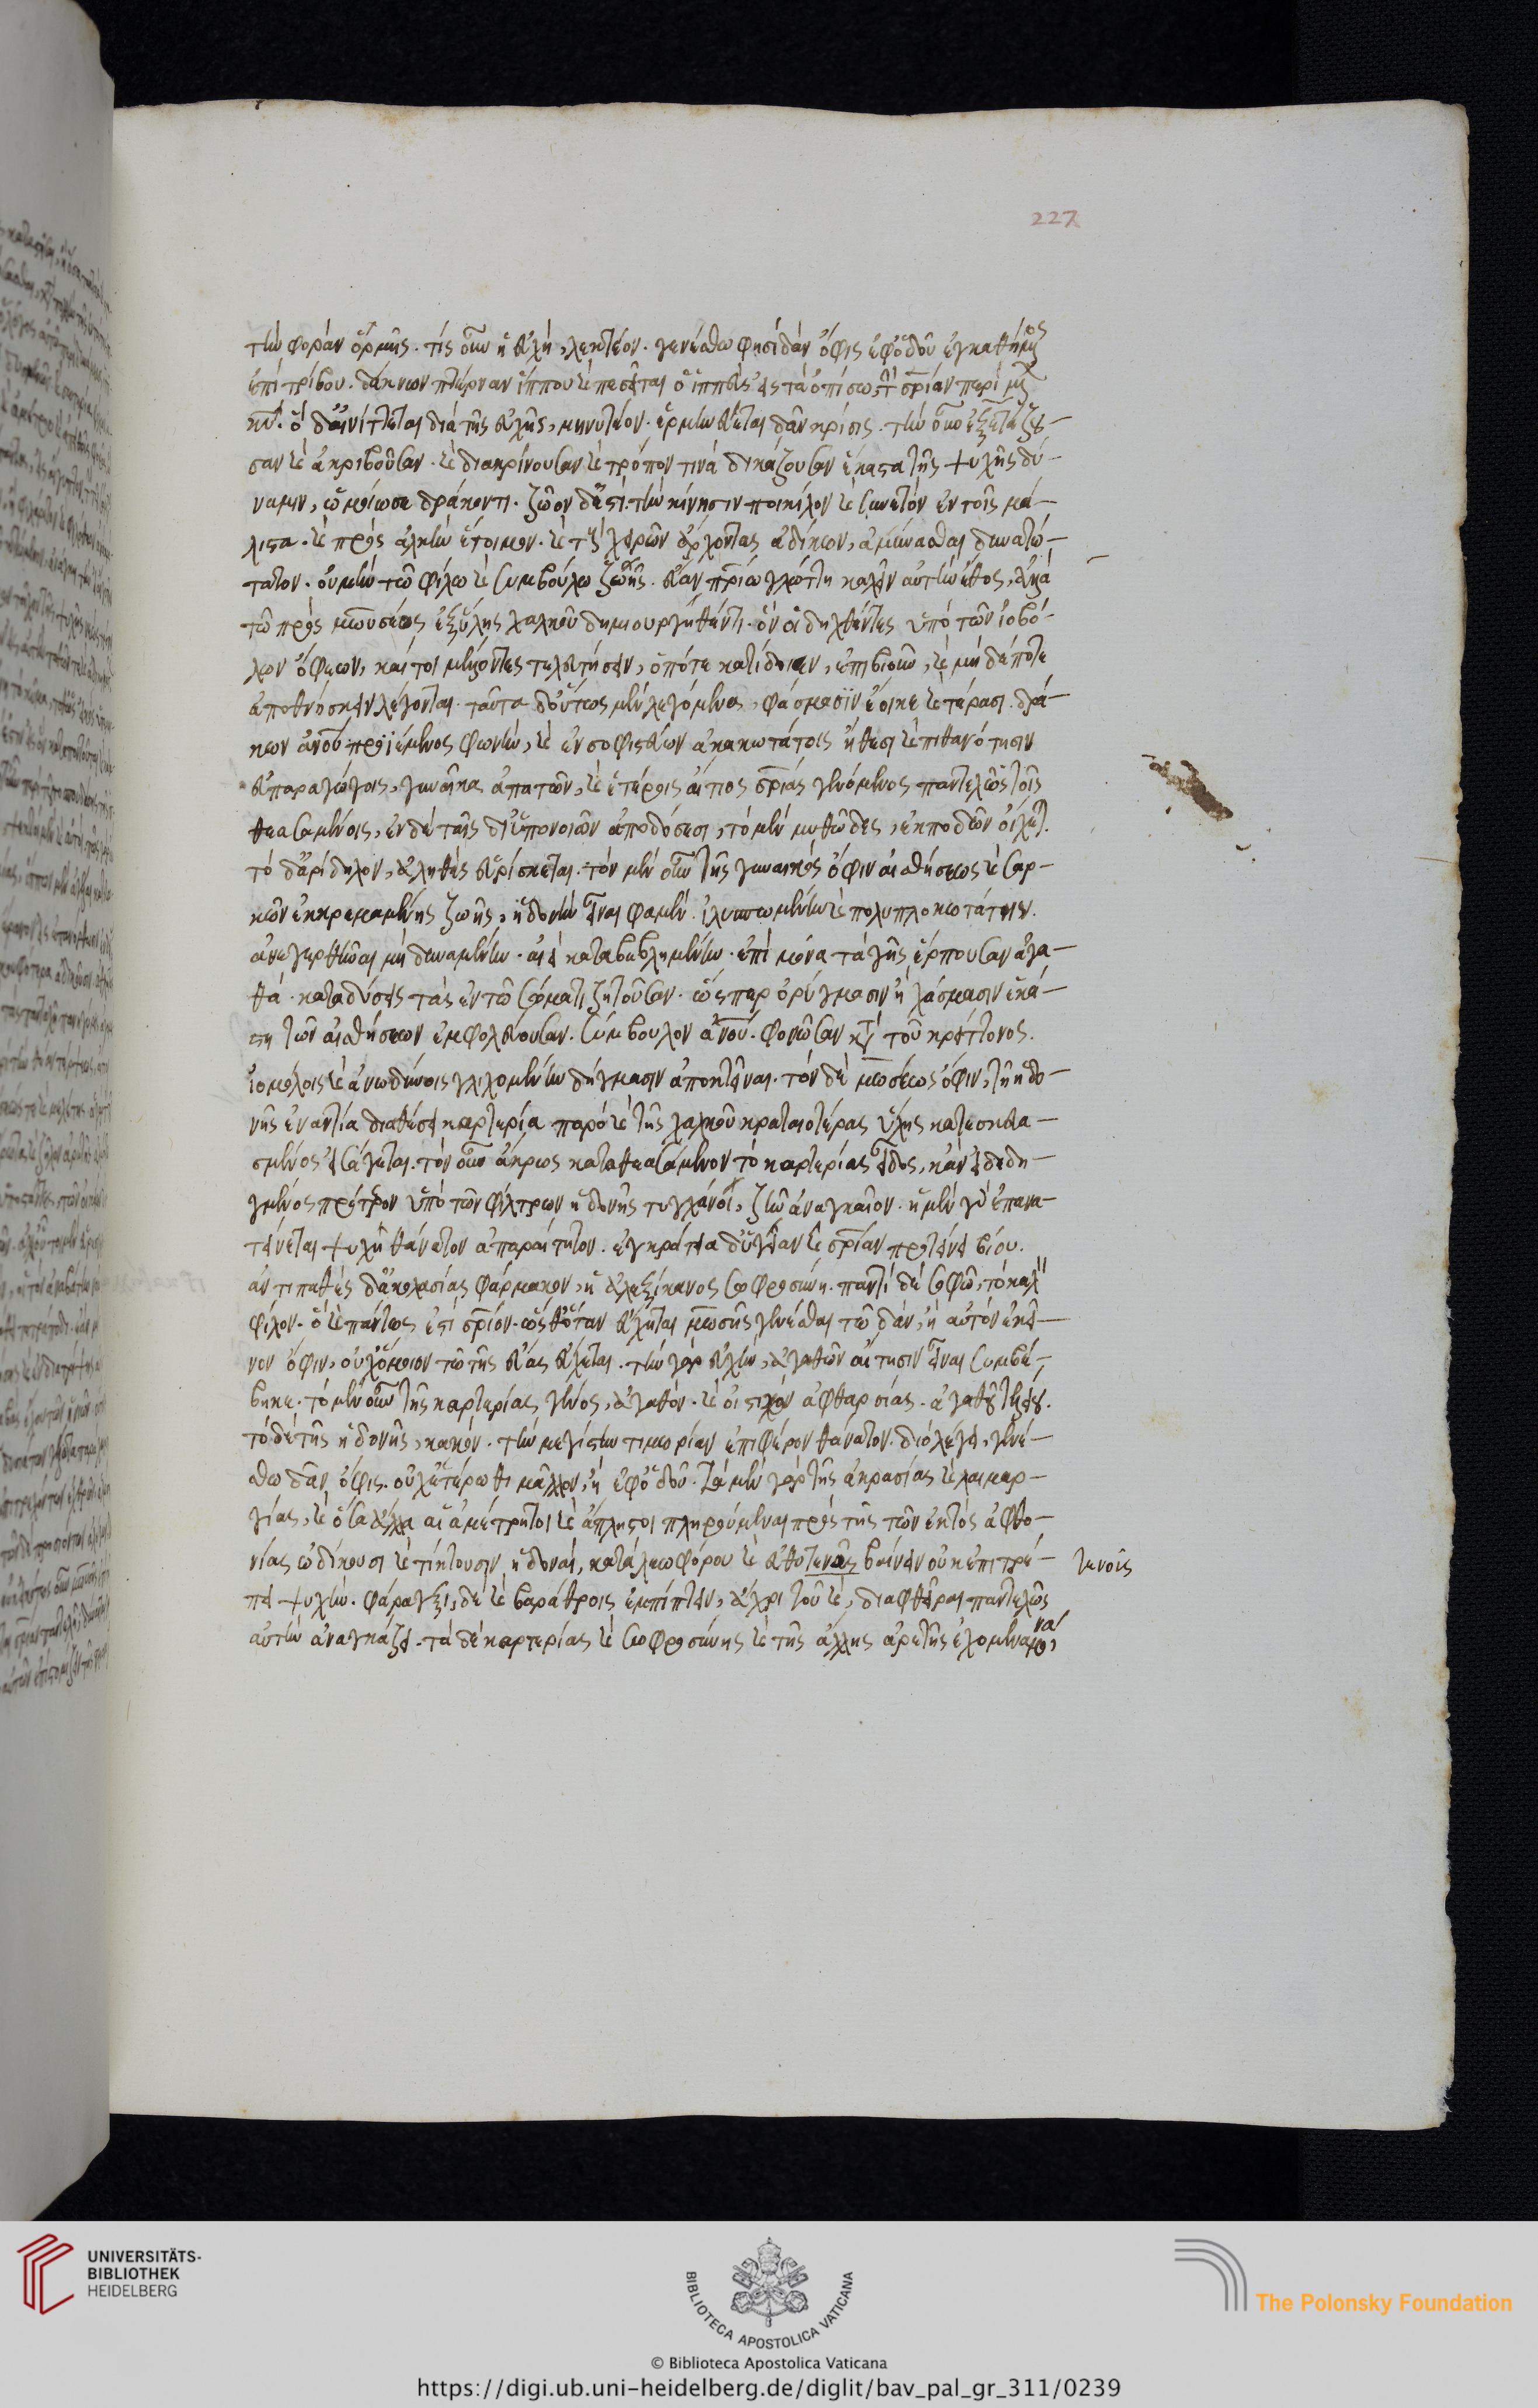 227
τὴν φορὰν ὁρμῆς. τίς οὖν ἡ εὐχή, λεκτέον. γενέσθω φησὶ δὰν ὄφις ἐφ' ὁδοῦ ἐγκαθήμενος
ἐπὶ τρίβου. δάκνων πτέρναν ἵππου καὶ πεσεῖται ὁ ἱππεὺς εἰς τὰ ὀπίσω, τὴν σρίαν περιμέν
κυ. ὃ δ' αἰνίττεται διὰ τῆς εὐχῆς, μηνυτέον. ἑρμηνεύεται δὰν κρίσις. τὴν οὖν ἐξετάζου-
σαν καὶ ἀκριβοῦσαν. καὶ διακρίνουσαν καὶ τρόπον τινὰ δικάζουσαν ἕκαστα τῆς ψυχῆς δύ-
ναμιν, ὡμοίωσε δράκοντι. ζῶον δ' ἐστὶ τὴν κίνησιν ποικίλον καὶ συνετὸν ἐν τοῖς μά-
λιστα. καὶ πρὸς ἀλκὴν ἕτοιμον. καὶ τοὺς χειρῶν ἄρχοντας ἀδίκων, ἀμύνασθαι δυνατώ-
τατον. οὐ μὴν τῶ φίλω καὶ συμβούλω ζωῆς. εὔαν πρίω γλώττη καλεῖν αὐτὴν ἔθος, ἀλλὰ
τῶ πρὸς μωυσέως ἐξ ὕλης χαλκοῦ δημιουργηθέντι. ὃν οἱ δηχθέντες ὑπὸ τῶν ἰοβό-
λων ὄφεων, καίτοι μέλλοντες τελευτήσειν, ὁπότε κατίδοιεν, ἐπιβιοῦν, καὶ μηδέποτε
ἀποθνήσκειν λέγονται. ταῦτα δ' οὕτως μὲν λεγόμενα, φάσμασϊν ἔοικε καὶ τέρασι. δρά-
κων ἀνου προϊέμενος φωνὴν, καὶ ἐνσοφιστεύων ἀκακωτάτοις ἤθεσι καὶ πιθανότησιν
εὐπαραγώγοις, γυναῖκα ἀπατῶν, καὶ ἑτέροις αἴτιος σρίας γενόμενος παντελῶς τοῖς
θεασαμένοις, ἐν δὲ ταῖς δι' ὑπονοιῶν ἀποδόσεσι, τὸ μὲν μυθῶδες, ἐκποδὼν οἴχετ.
τὸ δ' ἀρίδηλον, ἀληθὲς εὑρίσκεται. τὸν μὲν οὖν τῆς γυναικὸς ὄφιν αἰσθήσεως καὶ σαρ-
κῶν ἐκκρεμαμένης ζωῆς, ἡδονὴν εἶναι φαμέν. ἰλυσπωμένην καὶ πολυπλοκωτάτην.
ἀνεγερθῆναι μὴ δυναμένην. ἀεὶ καταβεβλημένην. ἐπὶ μόνα τὰ γῆς ἕρπουσαν ἀγα-
θά. καταδύσεις τὰς ἐν τῶ σώματι ζητοῦσαν. ὥσπερ ὀρύγμασιν ἢ χάσμασιν ἑκά-
στη τῶν αἰσθήσεων ἐμφολεύουσαν. σύμβουλον ἀνου. φονῶσαν κατὰ τοῦ κρείττονος.
ἰοβόλοις καὶ ἀνωδύνοις γλιχομένην δήγμασιν ἀποκτεῖναι. τὸν δὲ μωσέως ὄφιν, τὴν ἡδο-
νῆς ἐναντία διαθέσει καρτερία παρὸ καὶ τῆς χαλκοῦ κραταιοτέρας ὕλης κατεσκευα-
σμένος εἰσάγεται. τὸν οὖν ἄκρως καταθεασάμενον τὸ καρτερίας εἶδος, κἂν εἰ δεδη-
γμένος πρότερον ὑπὸ τῶν φίλτρων ἡδονῆς τυγχάνοι, ζῆν ἀναγκαῖον. ἡ μὲν γὰρ ἐπανα-
τείνεται ψυχῆ θάνατον ἀπαραίτητον. ἐγκράτεια δ' ὑγείαν καὶ σρίαν προτείνει βίου.
ἀντιπαθὲς δ' ἀκολασίας φάρμακον, ἡ ἀλεξίκακος σωφροσύνη. παντὶ δὲ σοφῶ, τὸ καλὸν
φίλον. ὃ καὶ πάντως ἐστὶ σρίον. ὥσθ' ὅταν εὔχηται μωσῆς γενέσθαι τῶ δὰν, ἢ αὐτὸν ἐκεῖ-
νον ὄφιν, οὐχ ὅμοιον τῶ τῆς εὔας εὔχεται. τὴν γὰρ εὐχὴν, ἀγαθῶν αἴτησιν εἶναι συμβέ-
βηκε. τὸ μὲν οὖν τῆς καρτερίας γένος, ἀγαθόν. καὶ οἰστικὸν ἀφθαρσίας. ἀγαθοῦ τελείου.
τὸ δὲ τῆς ἡδονῆς, κακόν. τὴν μεγίστην τιμωρίαν ἐπιφέρον θάνατον. διὸ λέγει, γενέ-
σθω δὰν ὄφις. οὐχ ἑτέρωθι μᾶλλον, ἢ ἐφ' ὁδοῦ. τὰ μὲν γὰρ τῆς ἀκρασίας καὶ λαιμαρ-
γίας, καὶ ὅσα ἄλλα αἱ ἀμέτρητοι καὶ ἄπληστοι πληρούμεναι πρὸς τῆς τῶν ἐκτὸς ἀφθο-
νίας ὠδίνουσι καὶ τίκτουσιν ἡδοναί, κατὰ λεωφόρου καὶ εὐθυτενοῦς βαίνειν οὐκ ἐπιτρέ- τενοῖς
πει ψυχήν. φάραγξι δὲ καὶ βαράθροις ἐμπίπτειν, ἄχρι τοῦ καὶ διαφθεῖραι παντελῶς
αὐτὴν ἀναγκάζει. τὰ δὲ καρτερίας καὶ σωφροσύνης καὶ τῆς ἄλλης ἀρετῆς ἐχόμενα,
μό
UNIVERSITÄTS-
BIBLIOTHEK
HEIDELBERG
BIBLIOTECA APOSTOLICA VATICANA
The Polonsky Foundation
© Biblioteca Apostolica Vaticana
https://digi.ub.uni-heidelberg.de/diglit/bav_pal_gr_311/0239